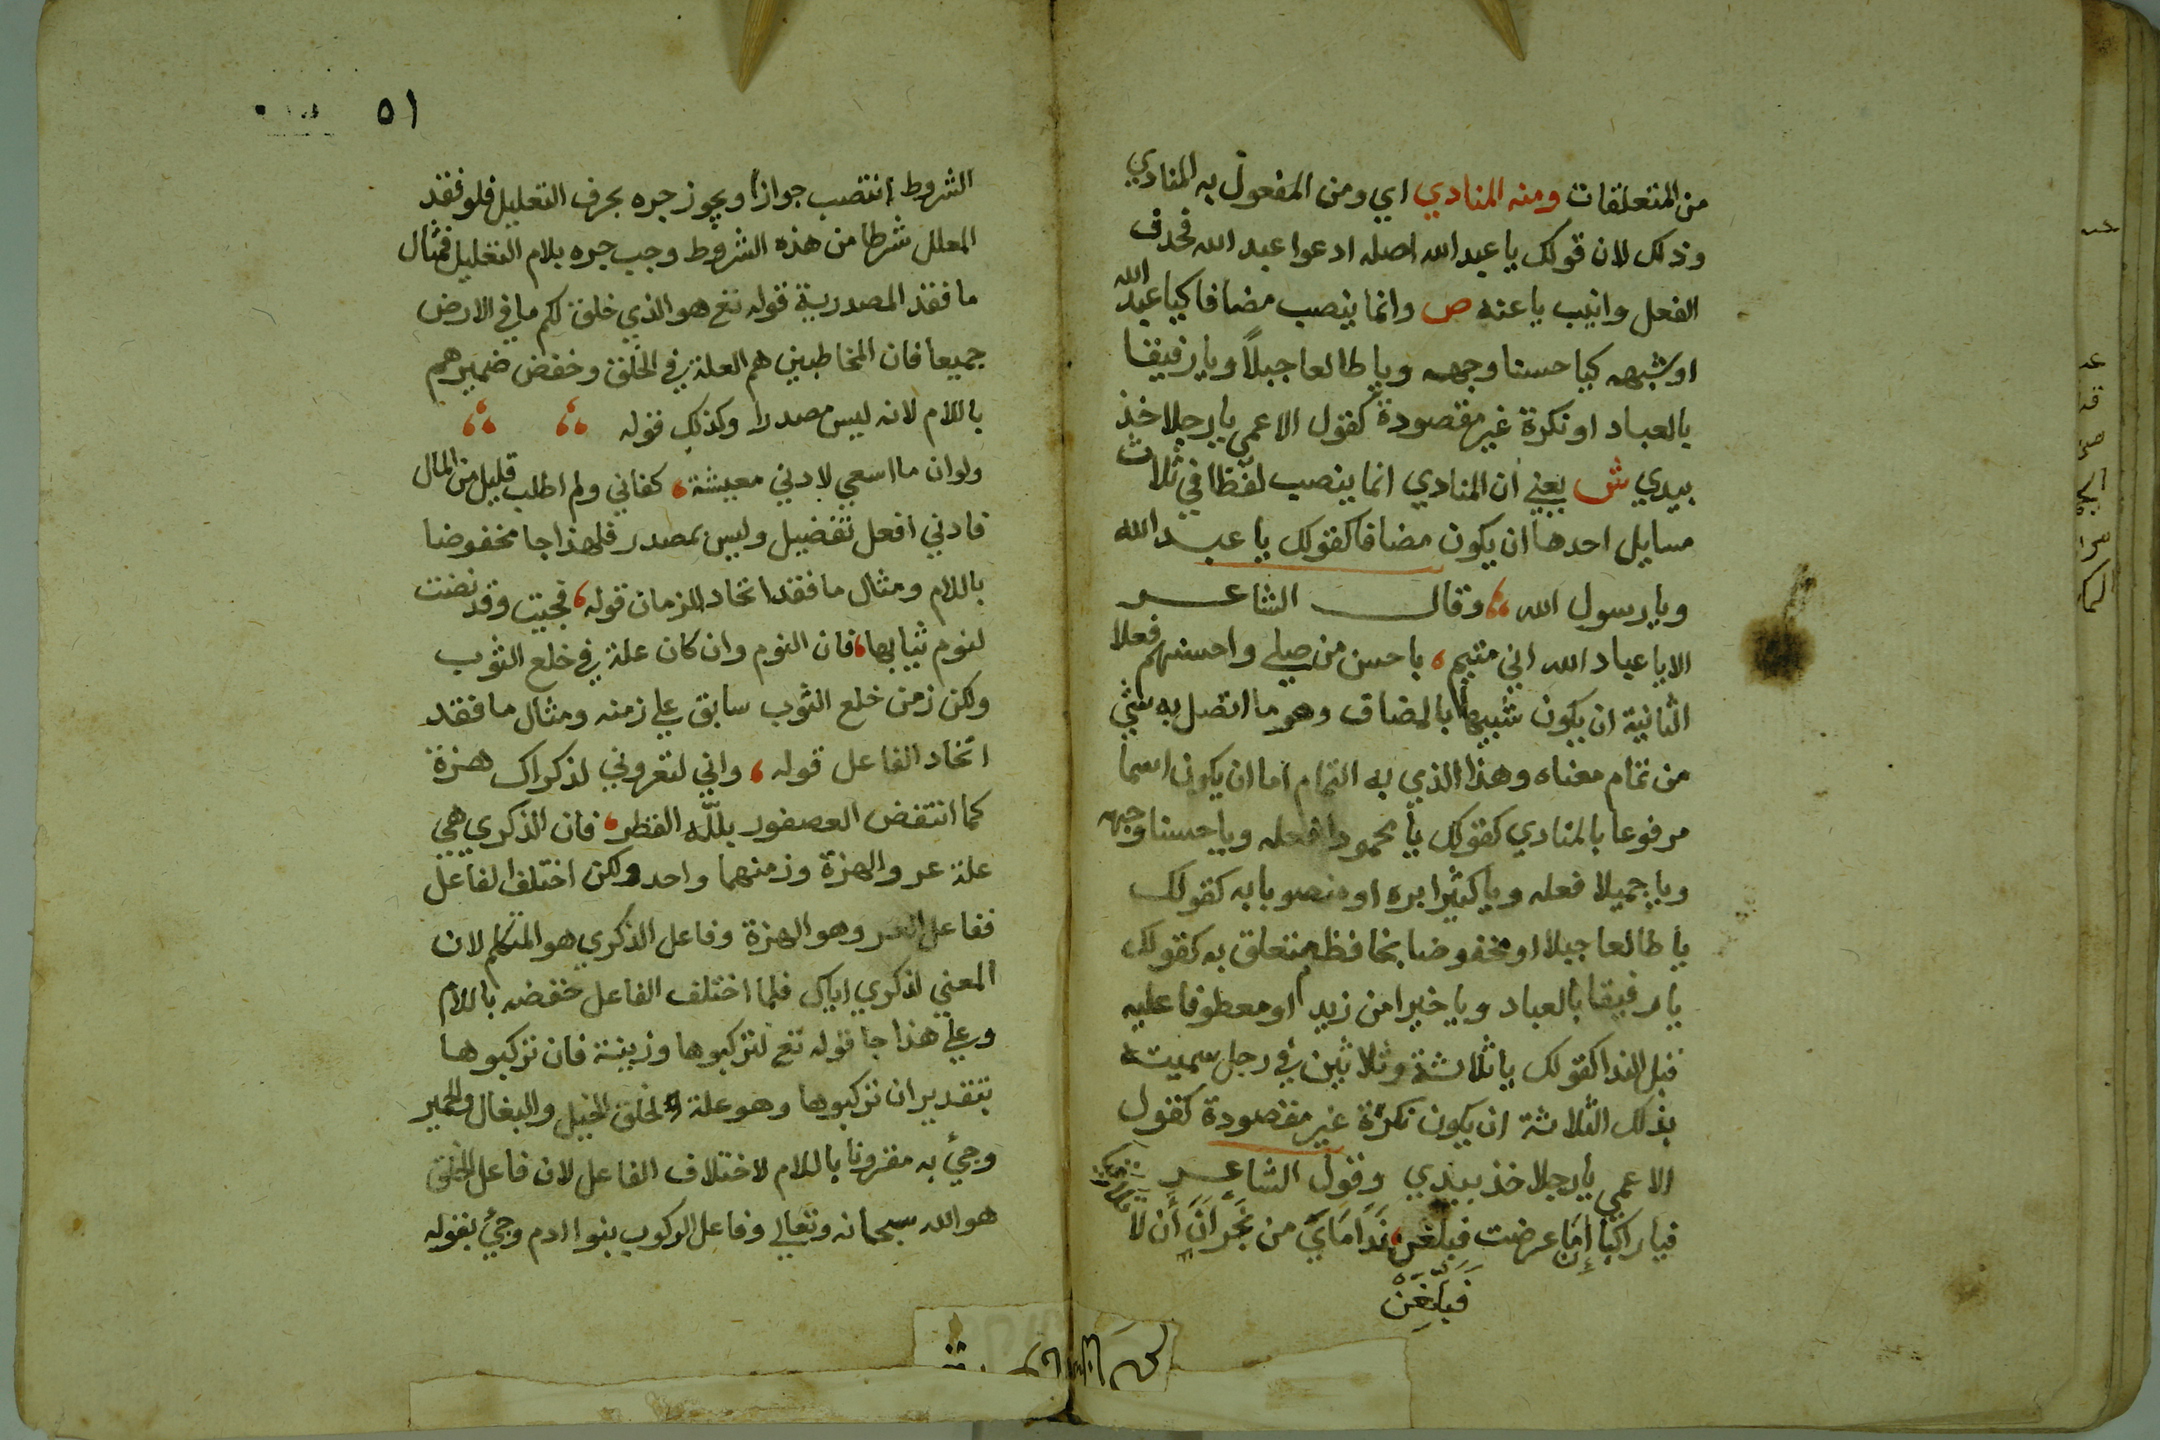 من المتعلقات ومنه المنادي اي ومن المفعول به المنادي
وذلك لان قولك يا عبد الله اصله ادعوا عبد الله فحذف
الفعل وانيب يا عنه ص وانما ينصب مضافا كيا عبد الله
او شبهه كيا حسنا وجهه ويا طالعا جبلاً ويا رفيقا
بالعباد او نكرة غير مقصودة كقول الاعمي يا رجلا خذ
بيدي ش يعني أن المنادي انما ينصب لفظا في ثلاث
مسايل احدها ان يكون مضافا كقولك يا عبد الله
ويا رسول الله وقال الشاعر
الا يا عباد الله اني متيم، باحسن من صلي واحسنهم فعلا
الثانية ان يكون شبيها بالمضاف وهو ما اتصل به شي
من تمام معناه وهذا الذي به التمام اما ان يكون اسما
مرفوعا بالمنادي كقولك يا محمودا فعله ويا حسنا وجهه
ويا جميلا فعله ويا كثيرا بره او منصوبا به كقولك
يا طالعا جبلا او مخفوضا بخافظ متعلق به كقولك
يا رفيقا بالعباد ويا خيرا من زيد او معطوفا عليه
قبل الندا كقولك يا ثلاثة وثلاثين في رجل سميته
بذلك الثلاثة ان يكون نكرة غير مقصودة كقول
الاعمي يا رجلا خذ بيدي وقول الشاعر
فيا راكبا إما عرضت فبلغن، نَدَامَايَ من نَجْرَانَ أَن لَا
فَبَلِّغَنْ
٥١
الشروط انتصب جوازا ويجوز جره بحرف التعليل فلو فقد
المعلل شرطا من هذه الشروط وجب جره بلام التعليل فمثال
ما فقد المصدرية قوله تع هو الذي خلق لكم ما في الارض
جميعا فان المخاطبين هم العلة في الخلق وخفض ضميرهم
باللام لانه ليس مصدرا وكذلك قوله
ولو ان ما اسعي لادني معيشة، كفاني ولم اطلب قليل من المال
فادني افعل تفضيل وليس بمصدر فلهذا جا مخفوضا
باللام ومثال ما فقد اتحاد الزمان قوله، فجيت وقد نضت
لنوم ثيابها، فان النوم وان كان علة في خلع الثوب
ولكن زمن خلع الثوب سابق علي زمنه ومثال ما فقد
اتحاد الفاعل قوله، واني لتعروني لذكراك هزة
كما انتفض العصفور بلله القطر، فان الذكري هي
علة عرو الهزة وزمنهما واحد ولكن اختلف الفاعل
ففاعل العرو هو الهزة وفاعل الذكري هو المتكلم لان
المعني لذكري اياك فلما اختلف الفاعل خفضه باللام
وعلي هذا جا قوله تع لتركبوها وزينة فان تركبوها
بتقدير ان تركبوها وهو علة لخلق الخيل والبغال والحمير
وجئ به مقرونا باللام لاختلاف الفاعل لان فاعل الخلق
هو الله سبحانه وتعالي وفاعل الركوب بنوا ادم وجئ بقوله